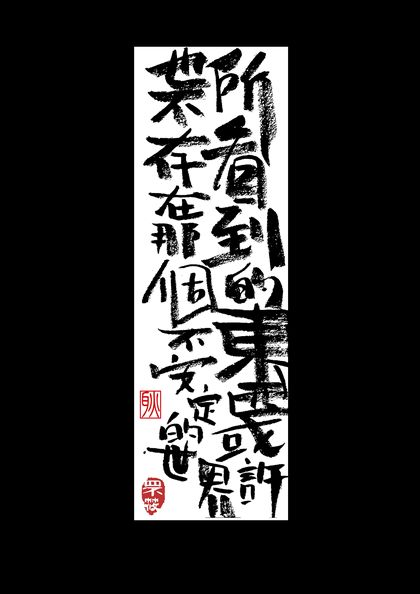 所看到的東西或許
並不存在那個不安定的世界
耿